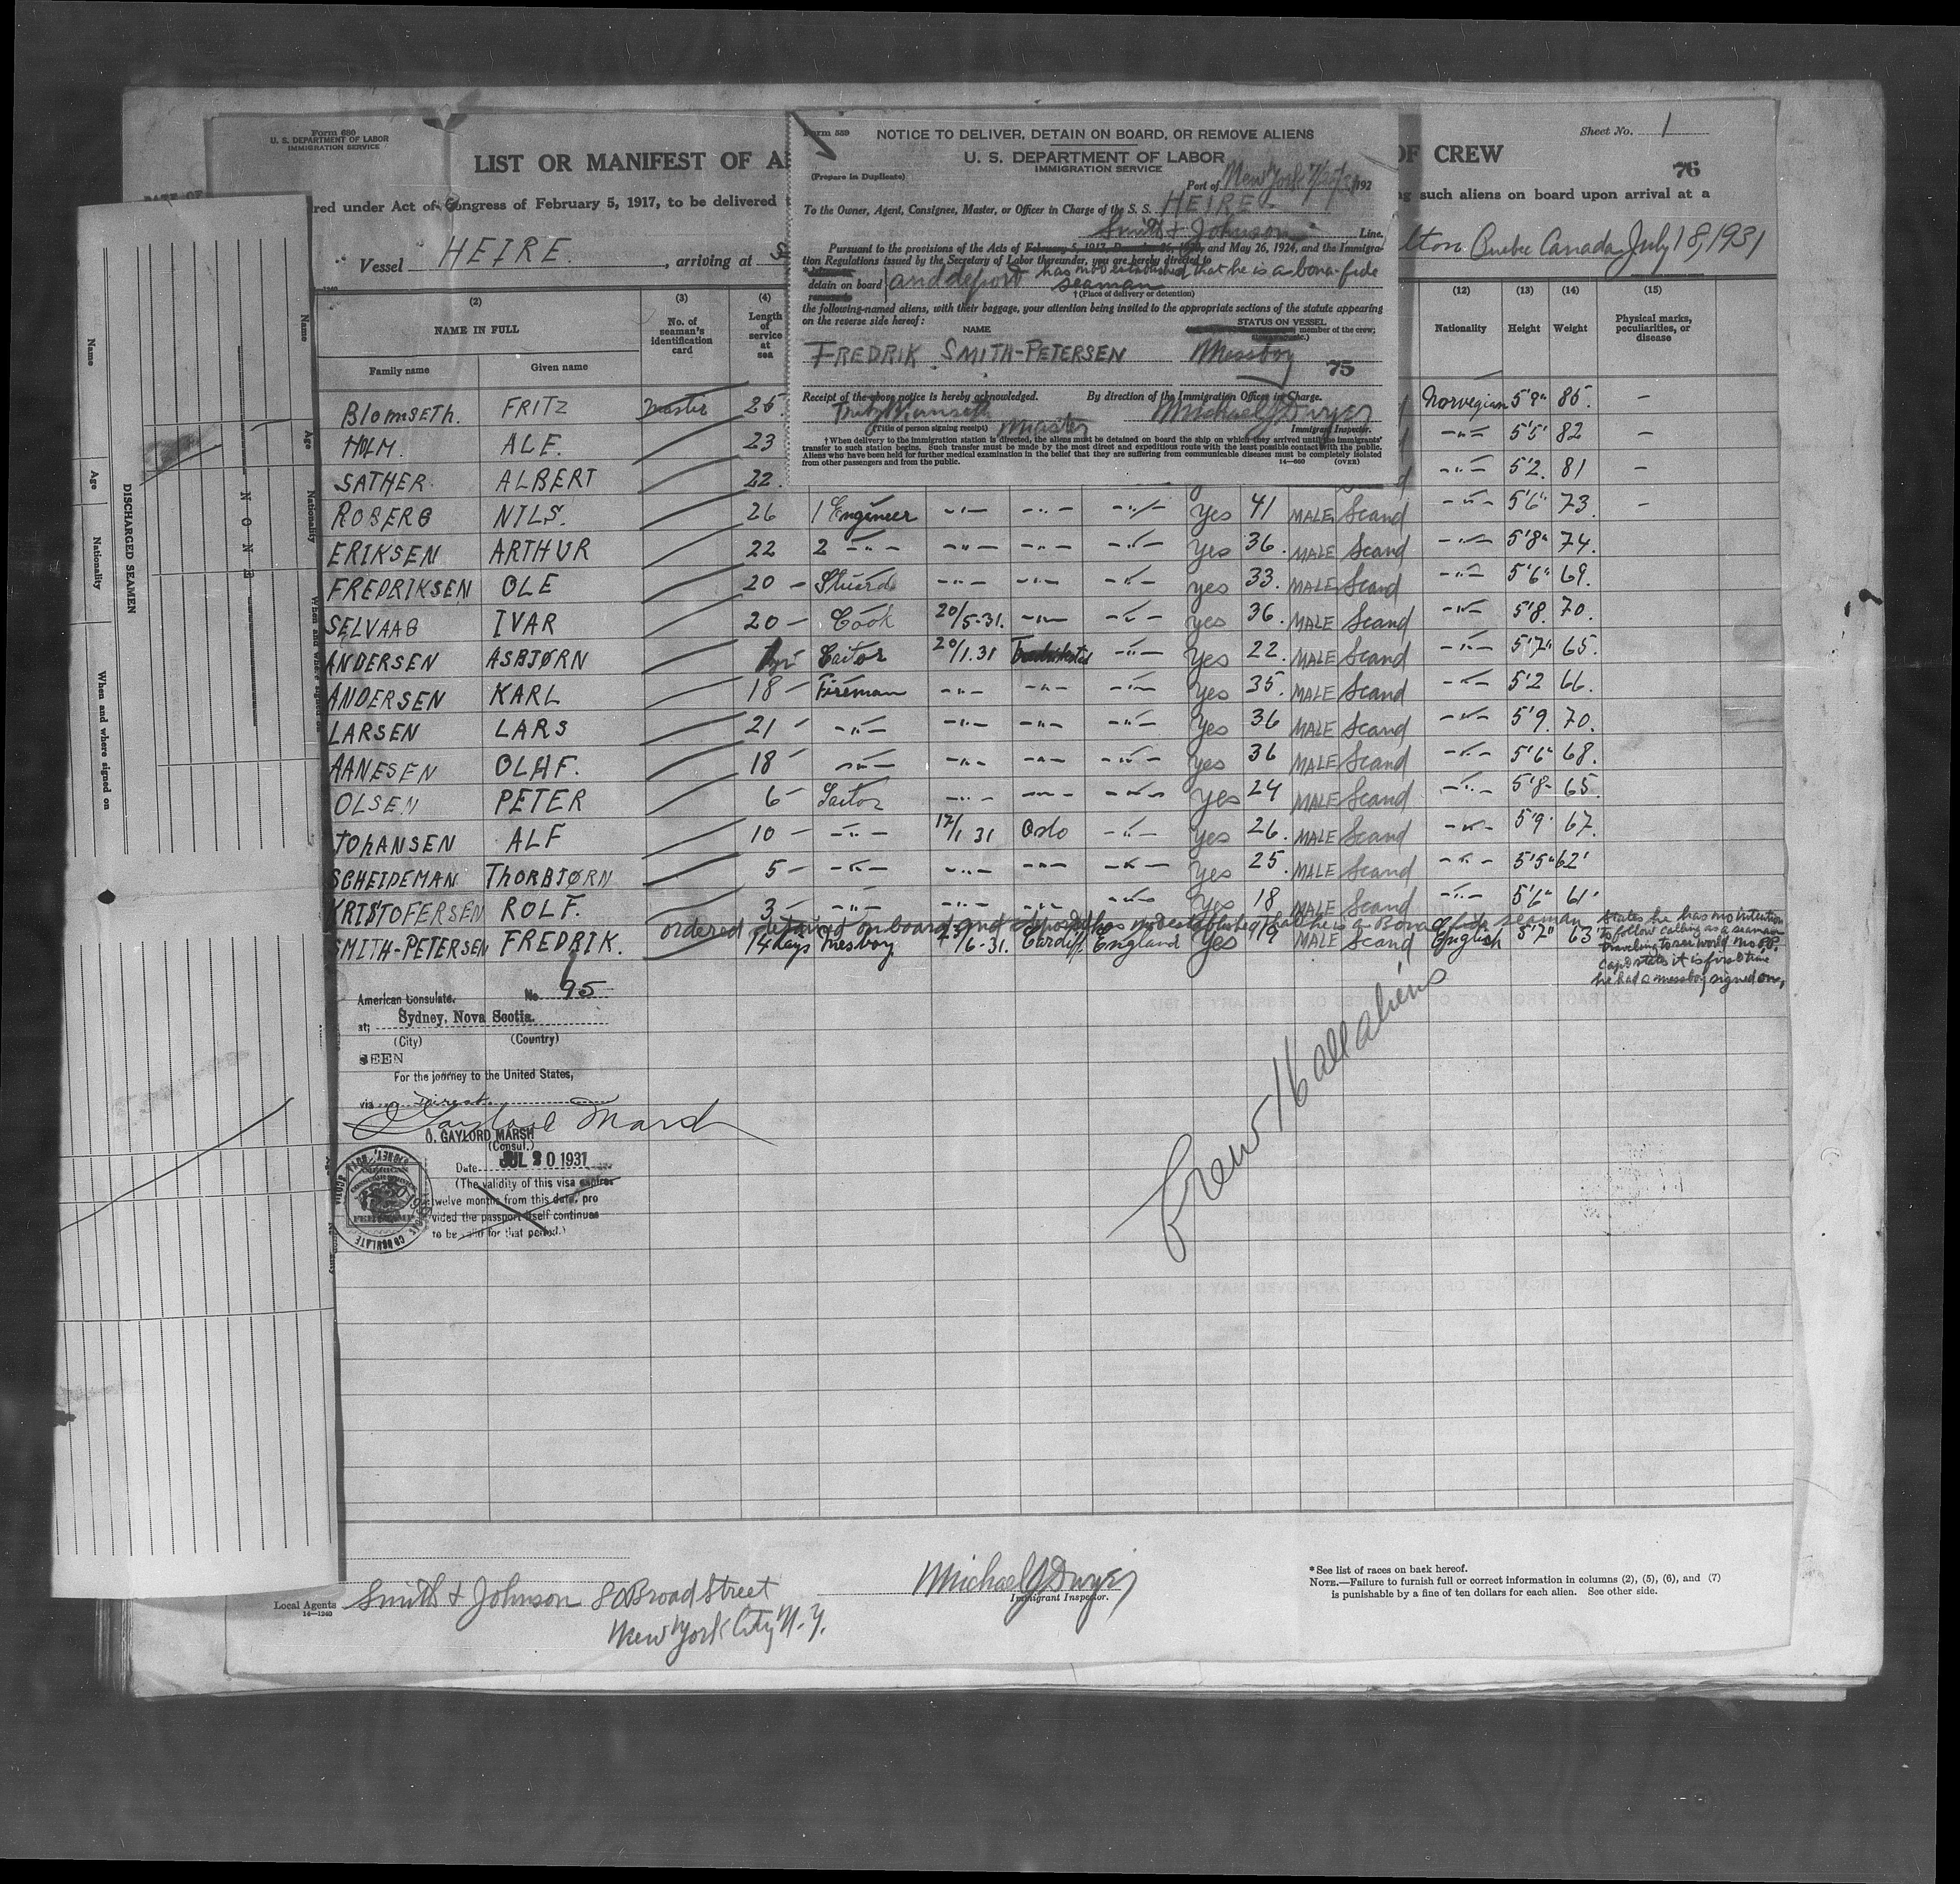 Form 680
U. S. DEPARTMENT OF LABOR
IMMIGRATION SERVICE
Sheet No. 1
LIST OR MANIFEST OF A
OF CREW
76
red under Act of Congress of February 5, 1917, to be delivered t
g such aliens on board upon arrival at a
Vessel HEIRE. , arriving at
lton Quebec Canada, July 18, 1931
Form 559
NOTICE TO DELIVER, DETAIN ON BOARD, OR REMOVE ALIENS
U. S. DEPARTMENT OF LABOR
IMMIGRATION SERVICE
(Prepare in Duplicate)
Port of New York 192
To the Owner, Agent, Consignee, Master, or Officer in Charge of the S. S. HEIRE
Smith & Johnson Line.
Pursuant to the provisions of the Acts of February 5, 1917, and May 26, 1924, and the Immigra-
tion Regulations issued by the Secretary of Labor thereunder, you are hereby directed to
detain on board and deport has not established that he is a bona-fide
seaman
†(Place of delivery or detention)
the following-named aliens, with their baggage, your attention being invited to the appropriate sections of the statute appearing
on the reverse side hereof:
NAME STATUS ON VESSEL
member of the crew;
FREDRIK SMITH-PETERSEN Messboy
75
Receipt of the above notice is hereby acknowledged. By direction of the Immigration Officer in Charge.
Michael J Dwyer
(Title of person signing receipt) Master Immigrant Inspector.
†When delivery to the immigration station is directed, the aliens must be detained on board the ship on which they arrived until the immigrants'
transfer to such station begins. Such transfer must be made by the most direct and expeditious route with the least possible contact with the public.
Aliens who have been held for further medical examination in the belief that they are suffering from communicable diseases must be completely isolated
from other passengers and from the public. 14—600 (OVER)
(2) (3) (4) (12) (13) (14) (15)
NAME IN FULL No. of seaman's identification card Length of service at sea Nationality Height Weight Physical marks, peculiarities, or disease
Family name Given name
BlomSETH. FRITZ Master 25. Norwegian 5'8" 85. —
HOLM. ALF. 23 -"- 5'5' 82 —
SATHER ALBERT 22. -"- 5'2. 81 —
ROBERG NILS. 26 1 Engineer -"- -"- -"- Yes 41 MALE Scand -"- 5'6" 73. —
ERIKSEN ARTHUR 22 2 -"- -"- -"- -"- Yes 36. MALE Scand -"- 5'8" 74.
FREDRIKSEN OLE 20 - Stuard -"- -"- -"- yes 33. MALE Scand -"- 5'6" 69.
SELVAAG IVAR 20 - Cook 20/5-31. -"- -"- yes 36. MALE Scand -"- 5'8. 70.
ANDERSEN ASBJØRN Sailor 20/1.31 -"- Yes 22. MALE Scand -"- 5'7" 65.
ANDERSEN KARL 18 - Fireman -"- -"- -"- Yes 35. MALE Scand -"- 5'2 66.
LARSEN LARS 21 - -"- -"- -"- -"- Yes 36 MALE Scand -"- 5'9. 70.
AANESEN OLAF. 18 - -"- -"- -"- -"- yes 36 MALE Scand -"- 5'6" 68.
OLSEN PETER 6 - Sailor -"- -"- -"- yes 24 MALE Scand -"- 5'8- 65.
JOhANSEN ALF 10 - -"- 12/1 31 Oslo -"- yes 26. MALE Scand -"- 5'9. 67.
SCHEIDEMAN ThORBJØRN 5 - -"- -"- -"- -"- Yes 25. MALE Scand -"- 5'5" 62'
KRISTOFERSEN ROLF. 3 - -"- -"- -"- -"- Yes 18 MALE Scand -"- 5'6" 61.
ordered detained on board and deported has not established that he is a Bona fide seaman
SMITH-PETERSEN FREDRIK. 14 days Mesboy /6-31. Cardiff England Yes 19 MALE Scand English 5'7" 63
States he has no intention
to follow calling as a seaman
traveling to see world no P.P.
Capt states it is first time
he had a messboy signed on,
American Consulate. No. 95
at; Sydney, Nova Scotia.
(City) (Country)
SEEN
For the journey to the United States,
via direct.
Gaylord Marsh
O. GAYLORD MARSH
(Consul.)
Date JUL 20 1931
(The validity of this visa expires
twelve months from this date, pro
vided the passport itself continues
to be valid for that period.)
Crew 16 all aliens
Name
Age
Nationality
When and where signed on
DISCHARGED SEAMEN
NONE
Name
Age
Nationality
Michael J Dwyer
Immigrant Inspector.
Local Agents Smith & Johnson 80 Broad Street
14—1240
New York City N.Y.
*See list of races on back hereof.
NOTE.—Failure to furnish full or correct information in columns (2), (5), (6), and (7)
is punishable by a fine of ten dollars for each alien. See other side.